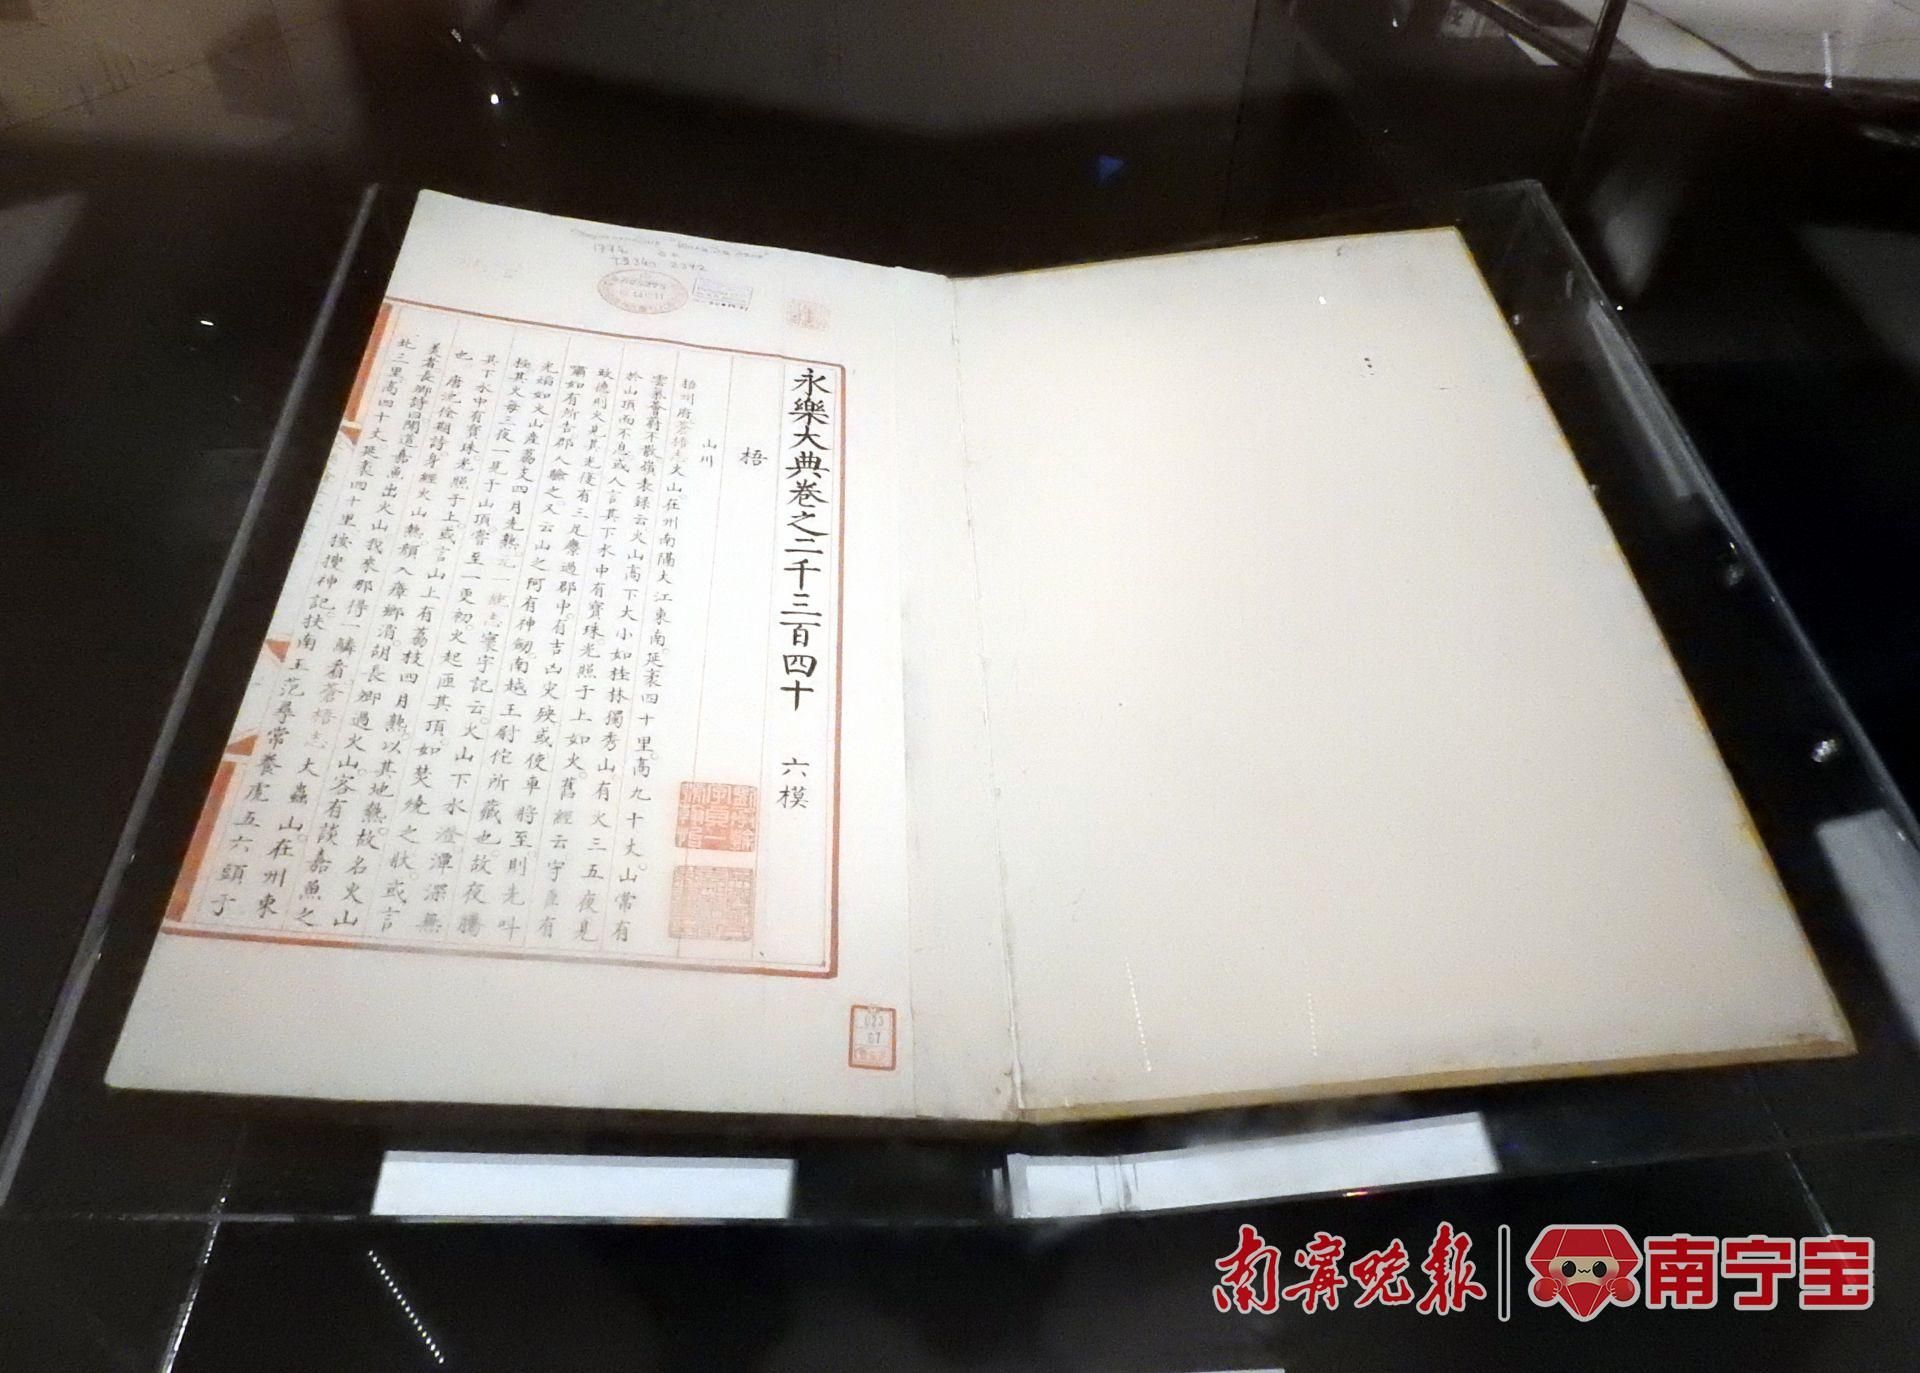 永樂大典卷之二千三百四十 六模
梧
山川
梧州府蒼梧志火山在州南隔大江東南延袤四十里高九十丈山常有
雲氣薈蔚不散嶺表録云火山高下大小如桂林獨秀山有火三五夜見
於山頂而不息或人言其下水中有寳珠光照于上如火舊經云守臣有
政德則火見其光復有三足麋過郡中有吉凶灾殃或使車將至則先叫
嘯如有所告郡人驗之又云山之阿有神劒南越王尉佗所藏也故夜騰
光焰如火山産荔支四月先熟元一統志寰宇記云火山下水澄潭深無
極其火每三夜一見于山頂嘗至一更初火起匝其頂如焚燒之狀或言
其下水中有寳珠光照于上或言山上有荔枝四月熟以其地熱故名火山
也唐沈佺期詩身經火山熱顔入瘴鄉消胡長卿過火山客有談嘉魚之
美者長卿詩曰聞道嘉魚出火山我來那得一鱗看蒼梧志大蟲山在州東
北三里高四十丈延袤四十里按搜神記扶南王范尋常養虎五六頭于
南宁晚报
南宁宝